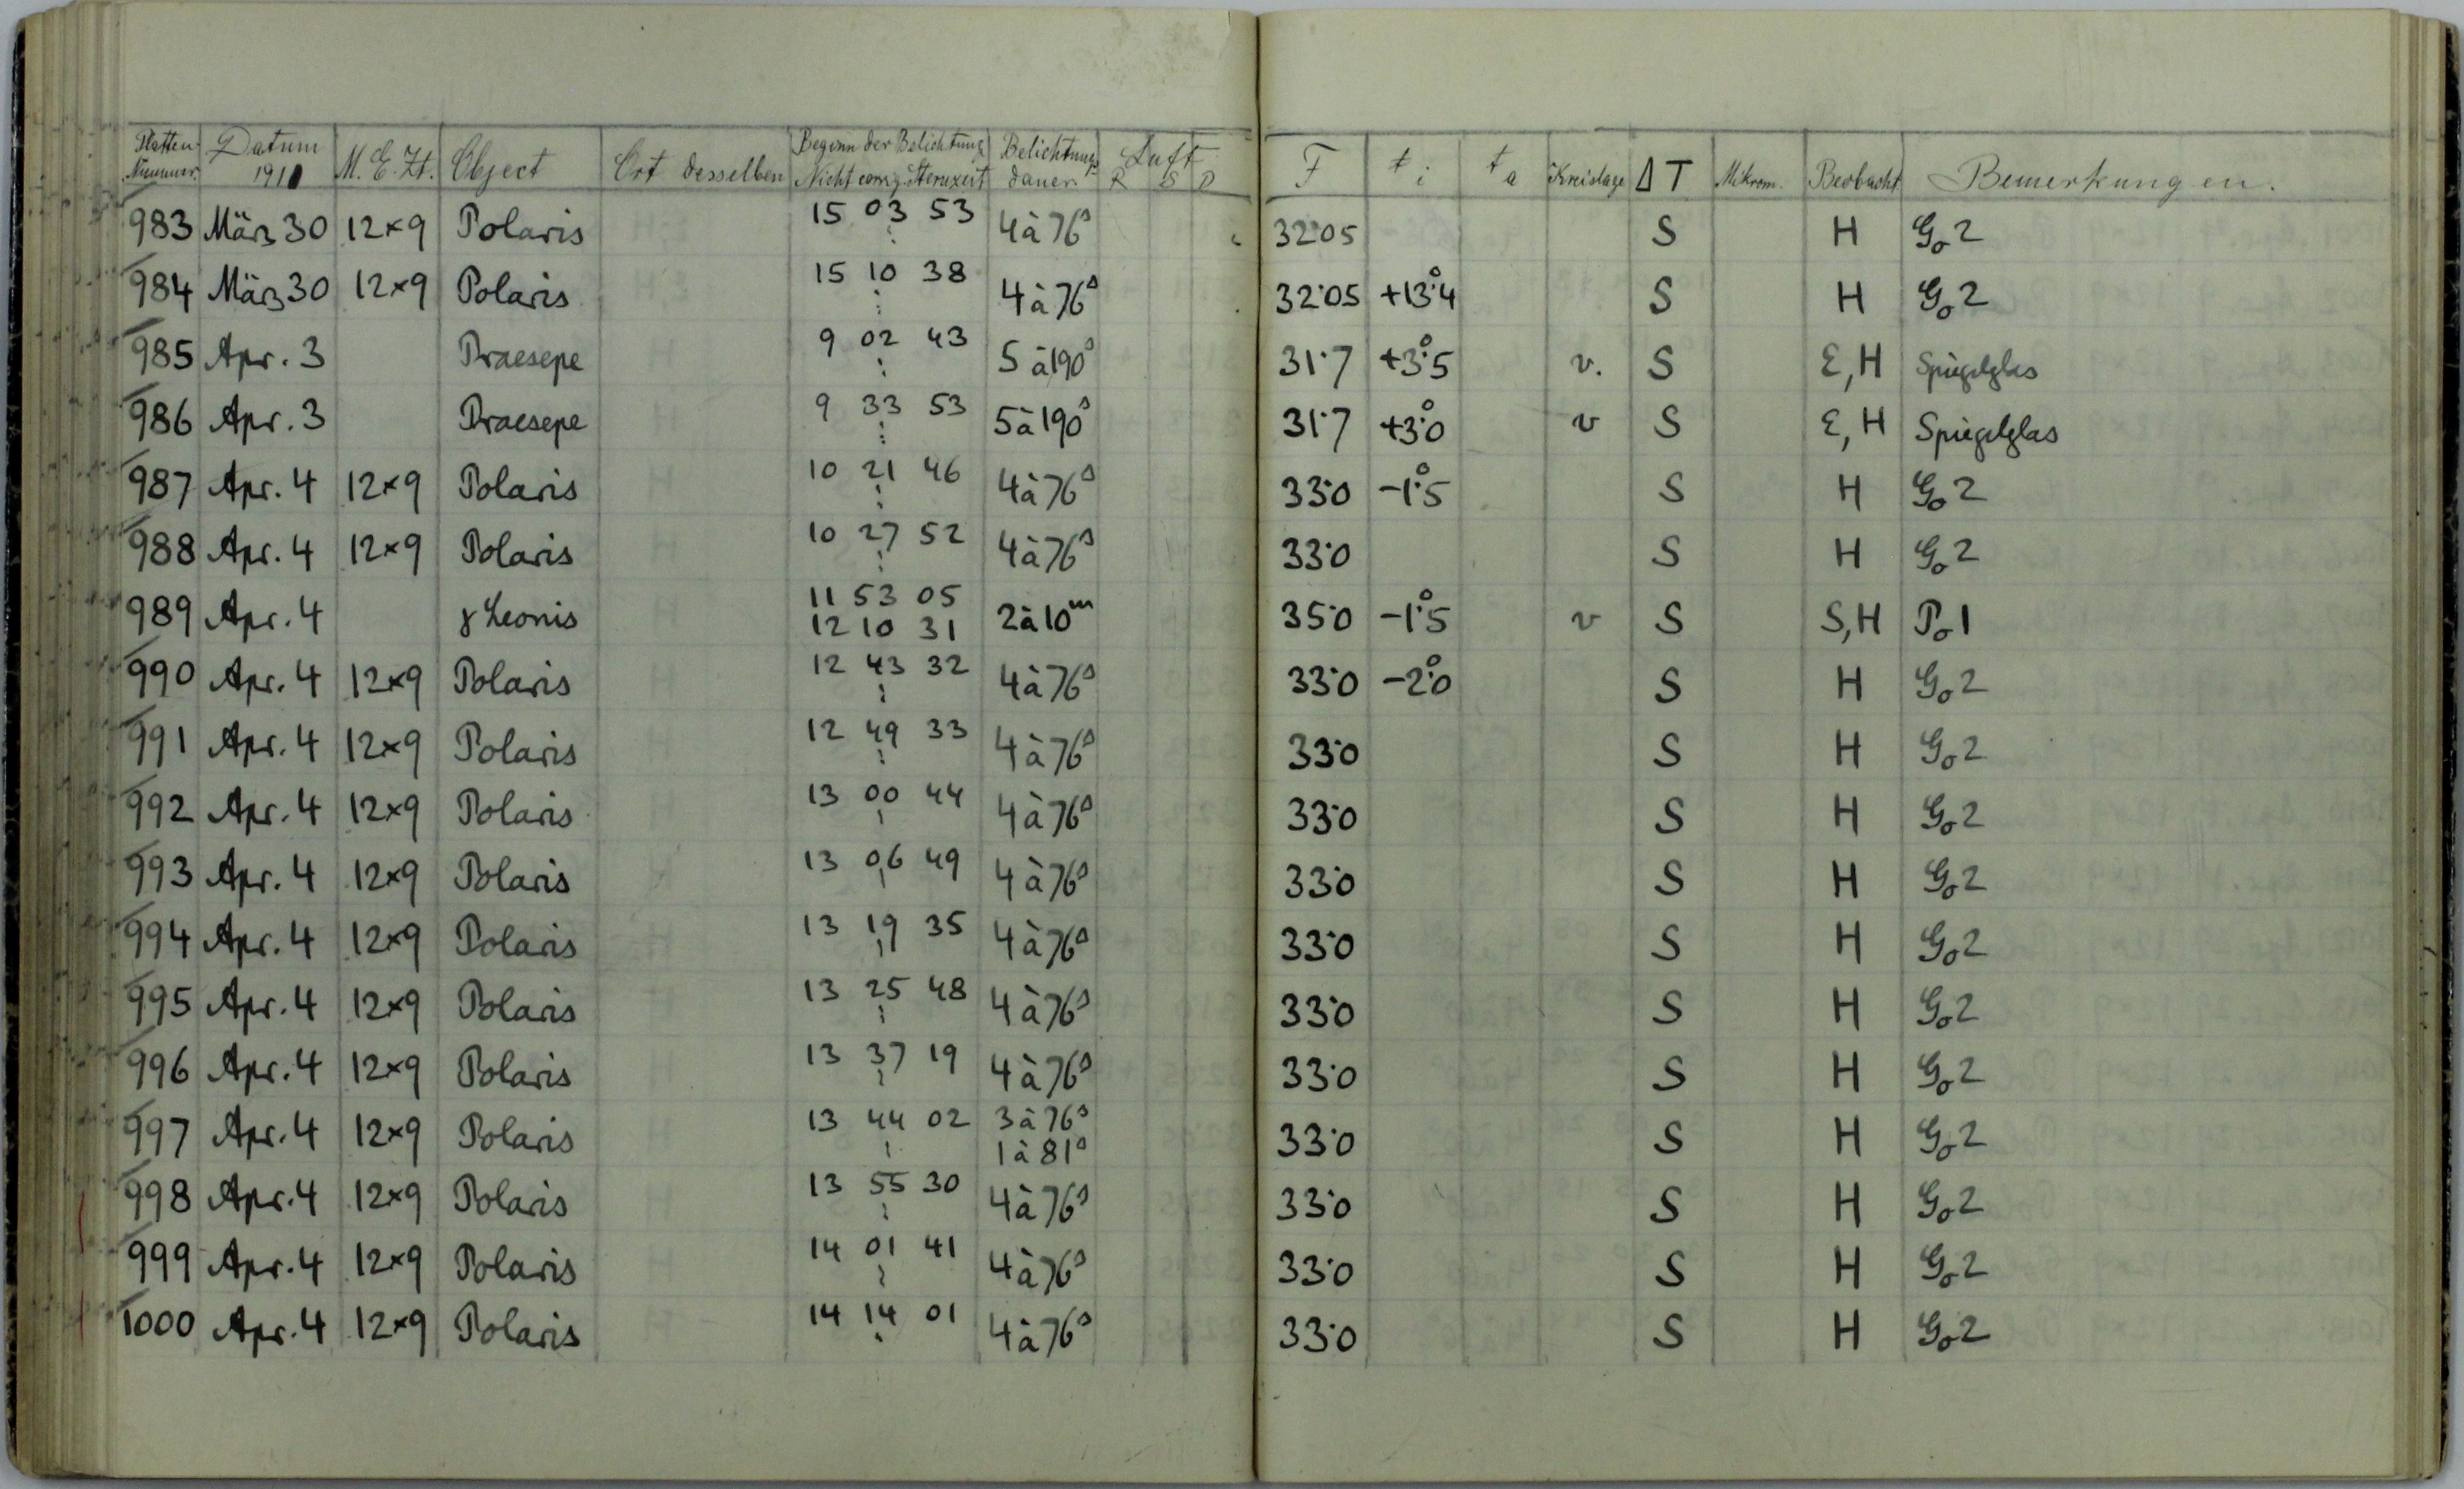 Platten Nummer. Datum 1911 M. E. Zt. Object Ort desselben Beginn der Belichtung Nicht corrig. Sternzeit Belichtungs dauer. Luft R S D F t i t a Kreislage Δ T Mikrom. Beobacht. Bemerkungen.
983 März 30 12×9 Polaris 15 03 53 4 à 76s 32.05 S H Go 2
984 März 30 12×9 Polaris 15 10 38 4 à 76s 32.05 +13°.4 S H Go 2
985 Apr. 3 Praesepe 9 02 43 5 à 190s 31.7 +3°.5 v. S E, H Spiegelglas
986 Apr. 3 Praesepe 9 33 53 5 à 190s 31.7 +3°.0 v S E, H Spiegelglas
987 Apr. 4 12×9 Polaris 10 21 46 4 à 76s 33.0 -1°.5 S H Go 2
988 Apr. 4 12×9 Polaris 10 27 52 4 à 76s 33.0 S H Go 2
989 Apr. 4 γ Leonis 11 53 05 2 à 10m 35.0 -1°.5 v S S, H Po 1
12 10 31
990 Apr. 4 12×9 Polaris 12 43 32 4 à 76s 33.0 -2°.0 S H Go 2
991 Apr. 4 12×9 Polaris 12 49 33 4 à 76s 33.0 S H Go 2
992 Apr. 4 12×9 Polaris 13 00 44 4 à 76s 33.0 S H Go 2
993 Apr. 4 12×9 Polaris 13 06 49 4 à 76s 33.0 S H Go 2
994 Apr. 4 12×9 Polaris 13 19 35 4 à 76s 33.0 S H Go 2
995 Apr. 4 12×9 Polaris 13 25 48 4 à 76s 33.0 S H Go 2
996 Apr. 4 12×9 Polaris 13 37 19 4 à 76s 33.0 S H Go 2
997 Apr. 4 12×9 Polaris 13 44 02 3 à 76s 33.0 S H Go 2
1 à 81s
998 Apr. 4 12×9 Polaris 13 55 30 4 à 76s 33.0 S H Go 2
999 Apr. 4 12×9 Polaris 14 01 41 4 à 76s 33.0 S H Go 2
1000 Apr. 4 12×9 Polaris 14 14 01 4 à 76s 33.0 S H Go 2